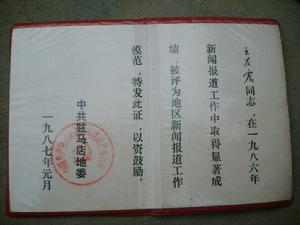 同志，在一九八六年
新闻报道工作中取得显著成
绩，被评为地区新闻报道工作
模范，特发此证，以资鼓励。
中共驻马店地委
一九八七年元月